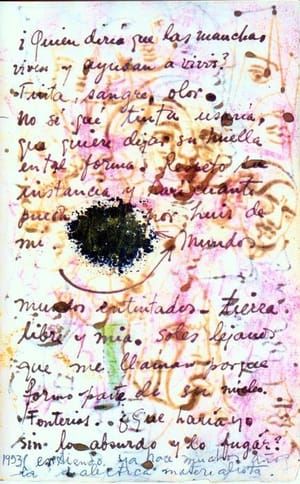 ¿Quien diria que las manchas
viven y ayudan a vivir?
Tinta, sangre, olor.
No se que tinta usaria,
que quiere dejar su huella
en tal forma. Respeto su
instancia y hare cuanto
pueda por huir de
mi mundos
mundos entintados - tierra
libre y mia. Soles lejanos
que me llaman porque
formo parte de su nucleo.
Tonterias. ¿Que haria yo
sin lo absurdo y lo fugaz?
1953( entiendo ya hace muchos años
la dialectica materialista.